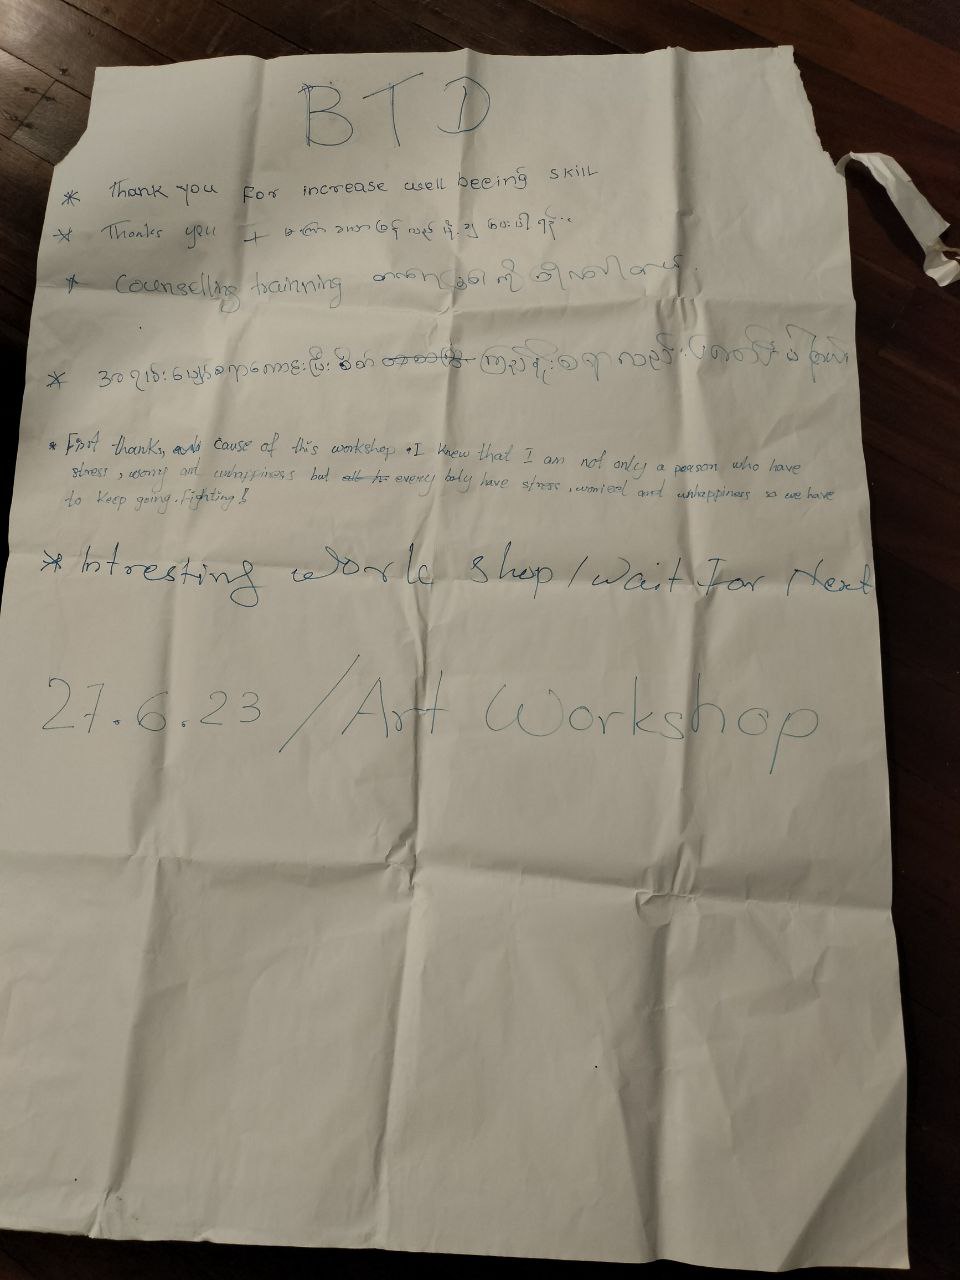 BTD
* Thank you For increase well beeing skill
* Thanks you + မကြာခဏ ပြန်လည်
* Counselling trainning တက်ရောက် ကို
* အရမ်းပျော်စရာကောင်းပြီး စိတ် ကြည်နူးစရာလည်း
* First thanks, cause of this workshop. I knew that I am not only a person who have
stress, worry and unhappiness but every body have stress, worried and unhappiness so we have
to keep going. fighting!
* Intresting work shop / Wait For Next
27.6.23 / Art Workshop